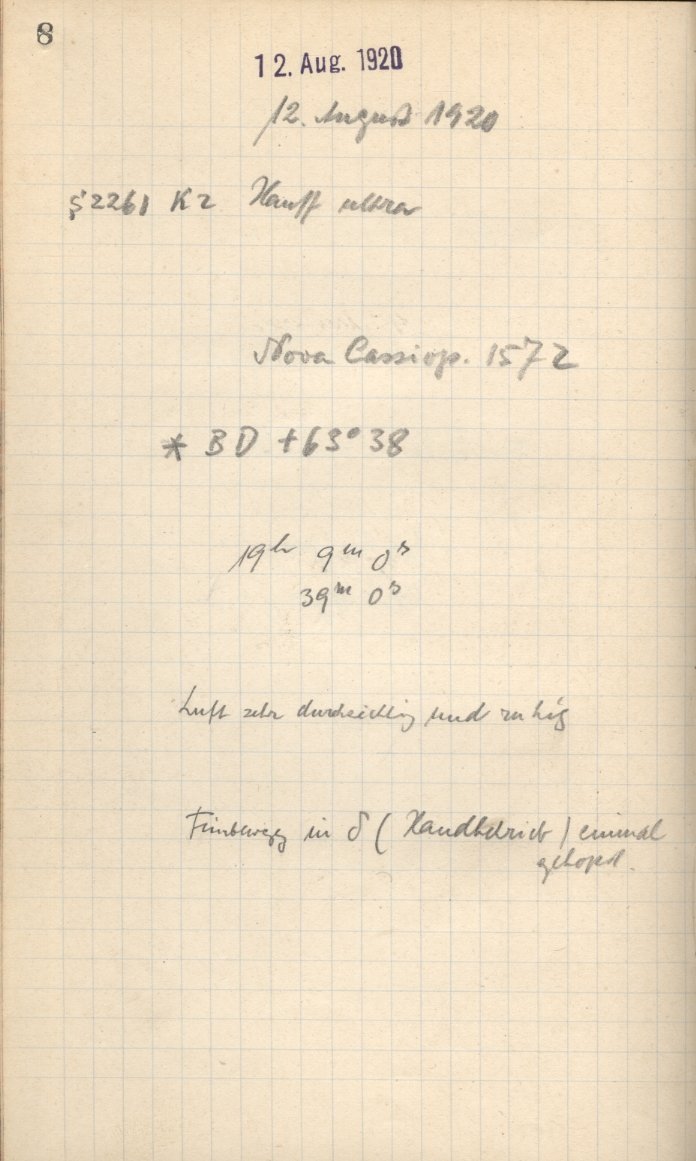 8
12. Aug. 1920
12. August 1920
S2261 K2 Hauff ultra
Nova Cassiop. 1572
* BD +63° 38
19h 9m 0s
39m 0s
Luft sehr durchsichtig und ruhig
Feinbewegg in δ (Handbetrieb) einmal
gehopst.